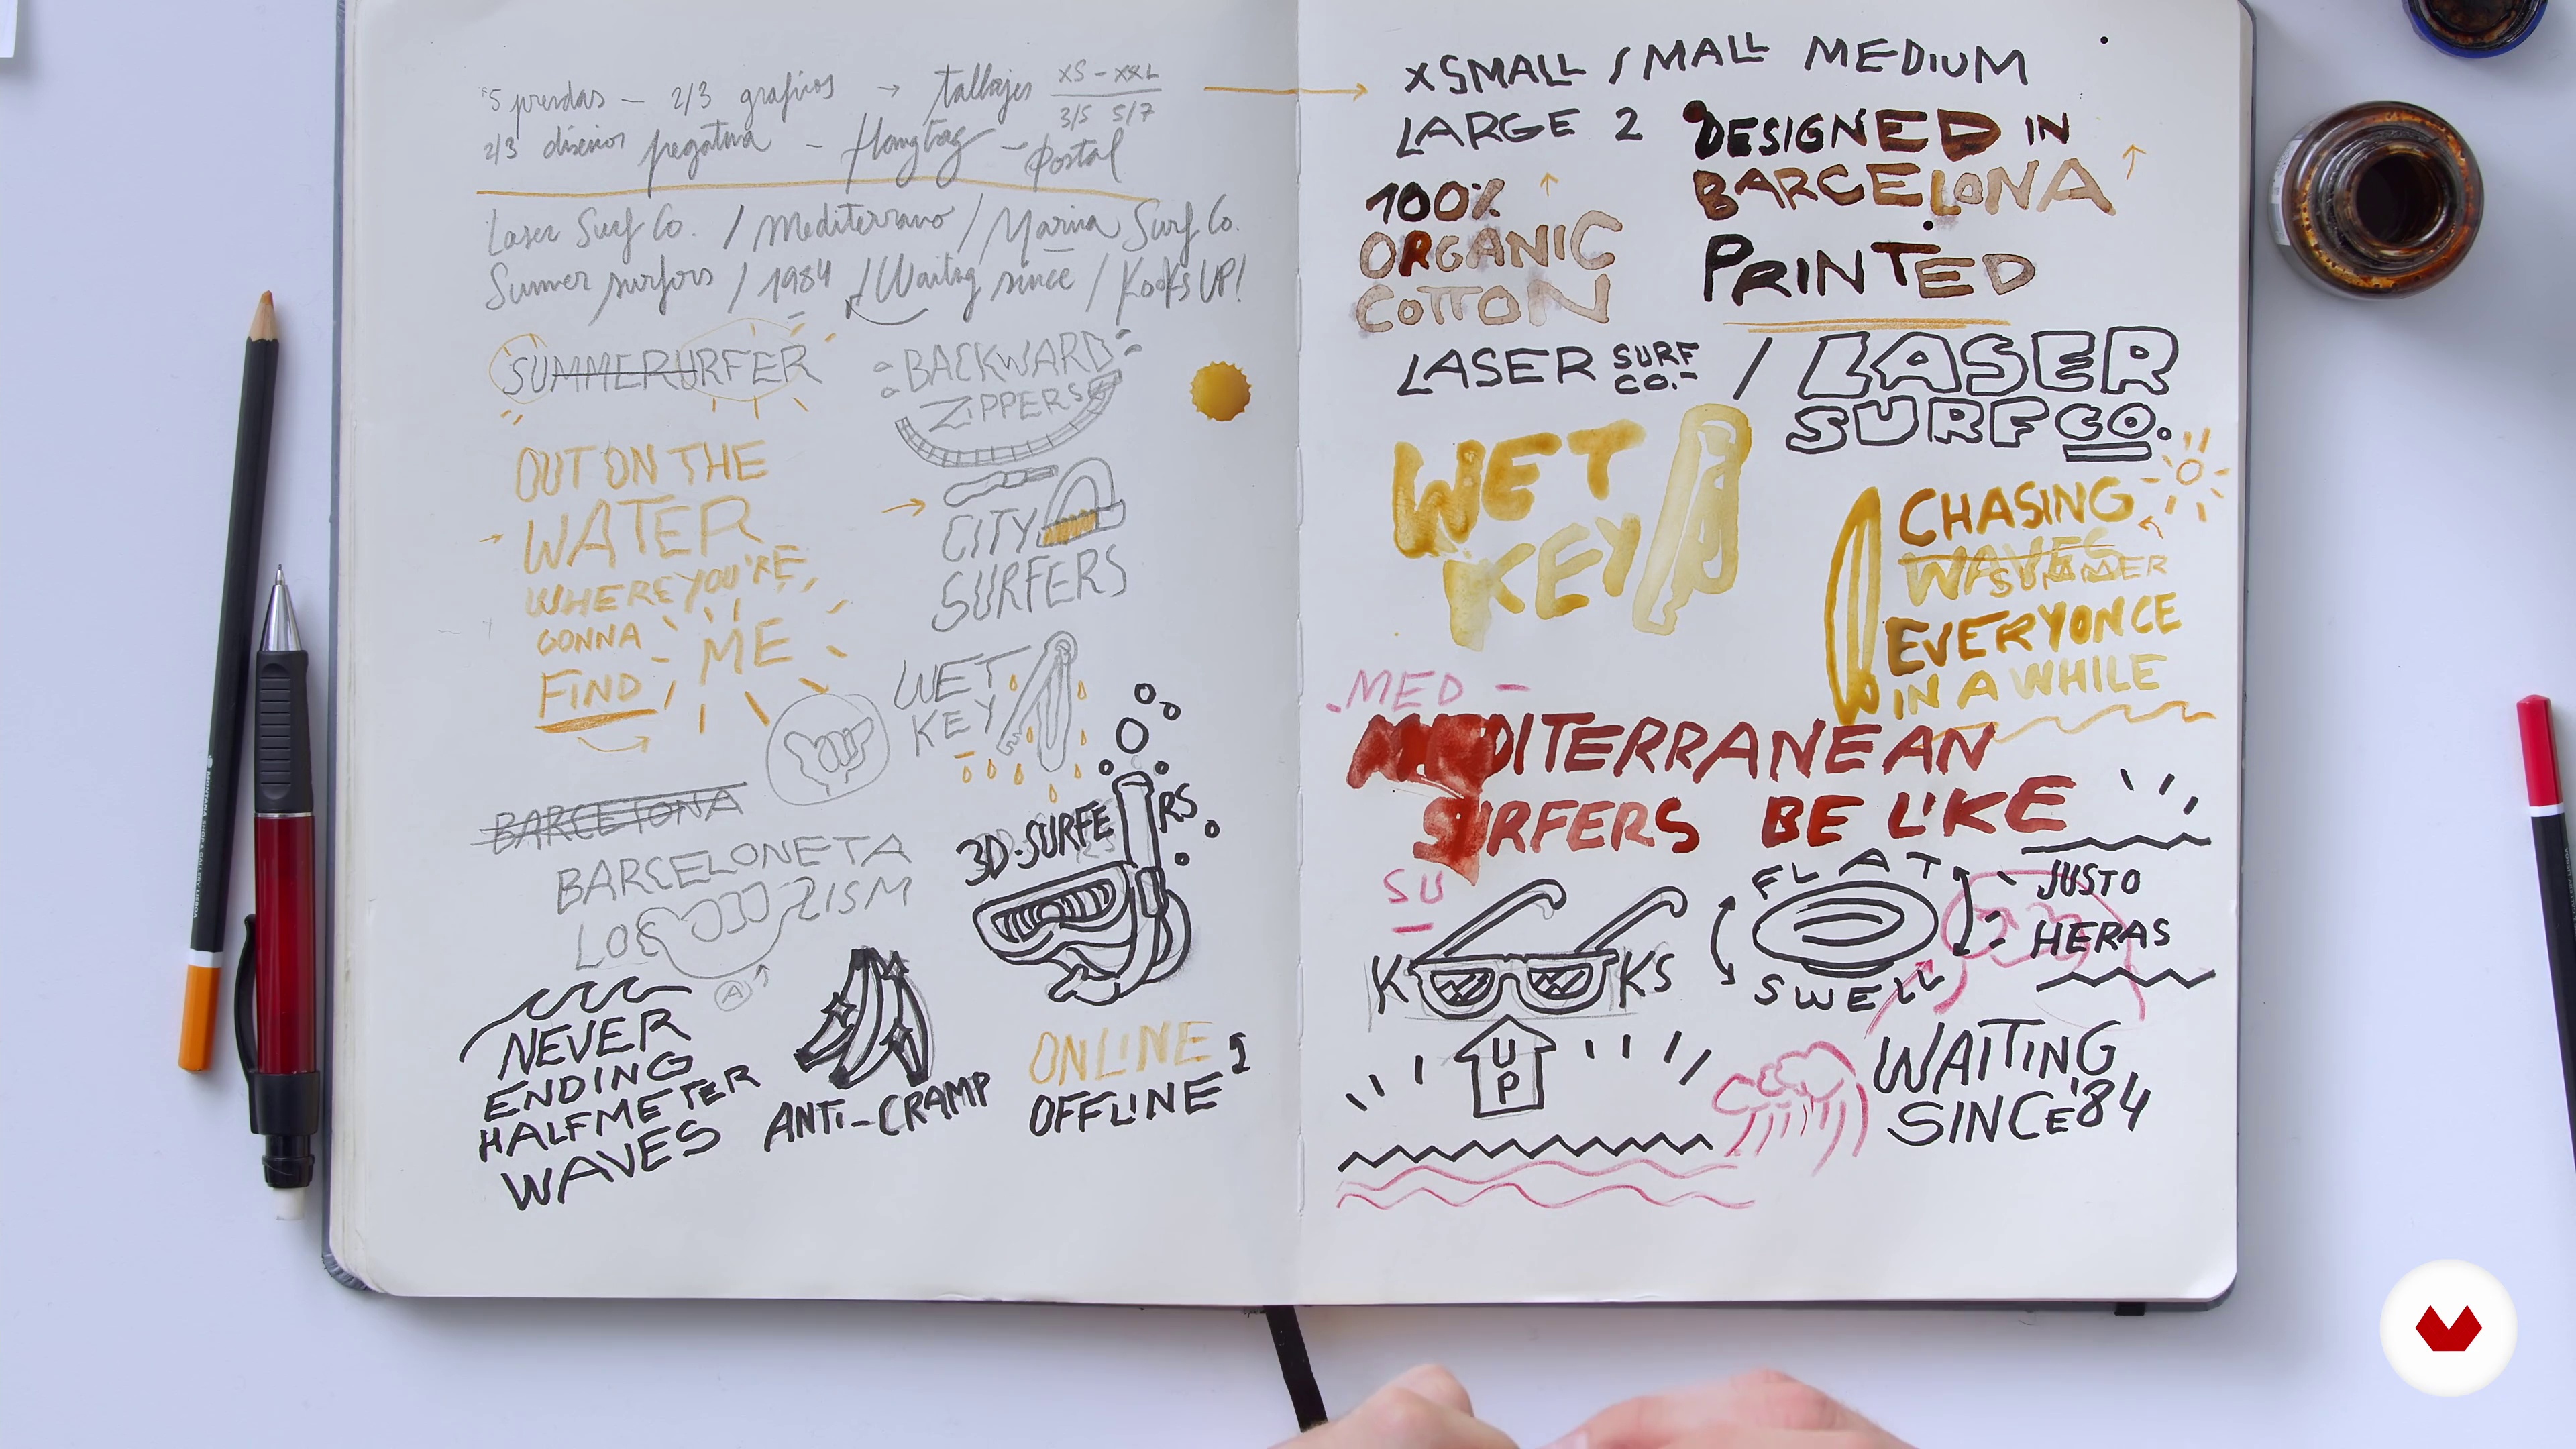 5 prendas - 2/3 graficos → tallajes XS - XXL
3/5 5/7
2/3 diseños pegatina - Hangtag - Postal
Laser Surf Co. / Mediterraneo / Marina Surf Co.
Summer surfers / 1984 / Waiting since / Kooks UP!
SUMMERURFER
OUT ON THE
WATER
WHERE YOU'RE
GONNA
FIND ME
BACKWARD
ZIPPERS
CITY
SURFERS
WET
KEY
BARCELONA
BARCELONETA
A
3D-SURFE RS
NEVER
ENDING
HALFMETER
WAVES
ANTI-CRAMP
ONLINE
OFFLINE
XSMALL SMALL MEDIUM
LARGE 2
DESIGNED IN
BARCELONA
100%
ORGANIC
COTTON
PRINTED
LASER SURF CO.- / LASER
SURF CO.
WET
KEY
CHASING
WAVES
SUMMER
EVERYONCE
IN A WHILE
MED -
MEDITERRANEAN
SURFERS BE LIKE
SU
K KS
UP
FLAT
SWELL
JUSTO
HERAS
WAITING
SINCE '84